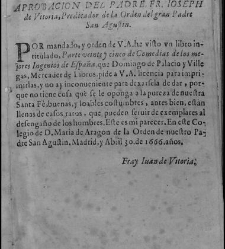 APROBACION DEL PADRE FR. IOSEPH
de Vitoria, Predicador de la Orden del gran Padre
San Agustin.
POR mandado, y orden de V.A. he visto vn libro in-
titulado, Parte veinte y cinco de Comedias de los me-
jores Ingenios de España, que Domingo de Palacio y Ville
gas, Mercader de Libros, pide a V.A. licencia para impri-
mirlas, y no ay inconueniente para dexarsela de dar, por-
que no tiene cosa que se le oponga a la pureza de nuestra
Santa Fè, buenas, y loables costumbres, antes bien, estan
llenas de casos raros, que pueden seruir de exemplares al
desengaño de los hombres. Este es mi parecer. En este Co-
legio de D. Maria de Aragon de la Orden de nuestro Pa-
dre San Agustin, Madrid, y Abril 30. de 1666. años.
Fray Iuan de Vitoria.